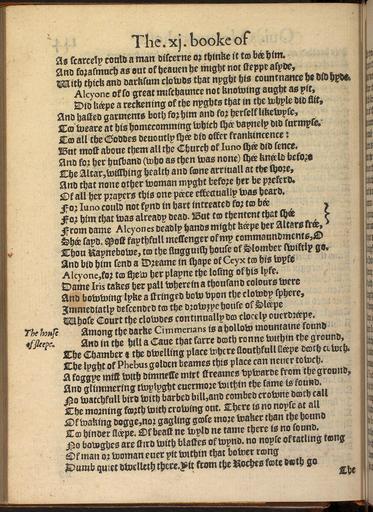 The. xj. booke of
As scarcely could a man discerne or thinke it to bee him.
And forasmuch as out of heaven he might not steppe asyde,
With thick and darksum clowds that nyght his countnance he did hyde.
Alcyone of so great mischaunce not knowing aught as yit,
Did keepe a reckening of the nyghts that in the whyle did flit,
And hasted garments both for him and for herself likewyse,
Too weare at his homecomming which shee vaynely did surmyse.
Too all the Goddes devoutly shee did offer frankincence:
But most above them all the Church of Iuno shee did sence.
And for her husband (who as then was none) shee kneeld before
The Altar, wisshing health and soone arriuall at the shore,
And that none other woman myght before her be preferd.
Of all her prayers this one peece effectually was heard.
For Iuno could not fynd in hart intreated for too bee
For him that was already dead. But too thentent that shee
From dame Alcyones deadly hands might keepe her Altars free,
Shee sayd. Most faythfull messenger of my commaundments, O
Thou Raynebowe, to the sugguish house of Slomber swiftly go.
And bid him send a Dreame in shape of Ceyx to his wyfe
Alcyone, for too shew her playne the losing of his lyfe.
Dame Iris takes her pall wherein a thousand colours were
And bowwing lyke a stringed bow upon the clowdy sphere,
Immediatly descended too the drowzye house of Sleepe
Whose Court the clowdes continually do closely ouerdreepe.
The house
of sleepe.
Among the darke Cimmerians is a hollow mountaine found
And in the hill a Caue that farre dooth ronne within the ground,
The Chamber & the dwelling place where slouthfull sleepe dooth cowch.
The lyght of Phebus golden beames this place can never towch.
A foggye mist with dimnesse mixt streames vpwarde from the ground,
And glimmering twylyght euermore within the same is found.
No watchfull bird with barbed bill, and combed crowne dooth call
The morning foorth with crowing out. There is no noyse at all
Of waking dogge, nor gagling goose more waker than the hound
Too hinder sleepe. Of beast ne wyld ne tame there is no sound.
No bowghes are stird with blastes of wynd, no noyse of tatling toong
Of man or woman euer yit within that bower roong
Dumb quiet dwelleth there. Yit from the Roches foote dooth go
The